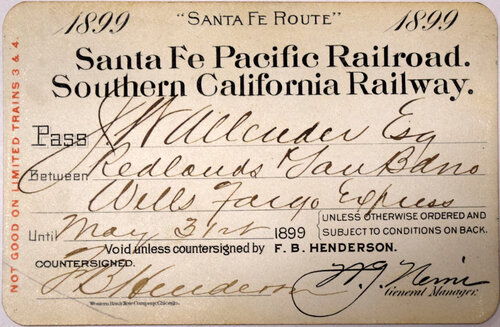 1899 "SANTA FE ROUTE" 1899
Santa Fe Pacific Railroad.
Southern California Railway.
Pass J W Allender Esq
Between Redlands & San Bdno
Wells Fargo Express
Until May 31st 1899 UNLESS OTHERWISE ORDERED AND SUBJECT TO CONDITIONS ON BACK.
Void unless countersigned by F. B. HENDERSON.
COUNTERSIGNED.
F B Henderson
General Manager.
Western Bank Note Company, Chicago.
NOT GOOD ON LIMITED TRAINS 3 & 4.